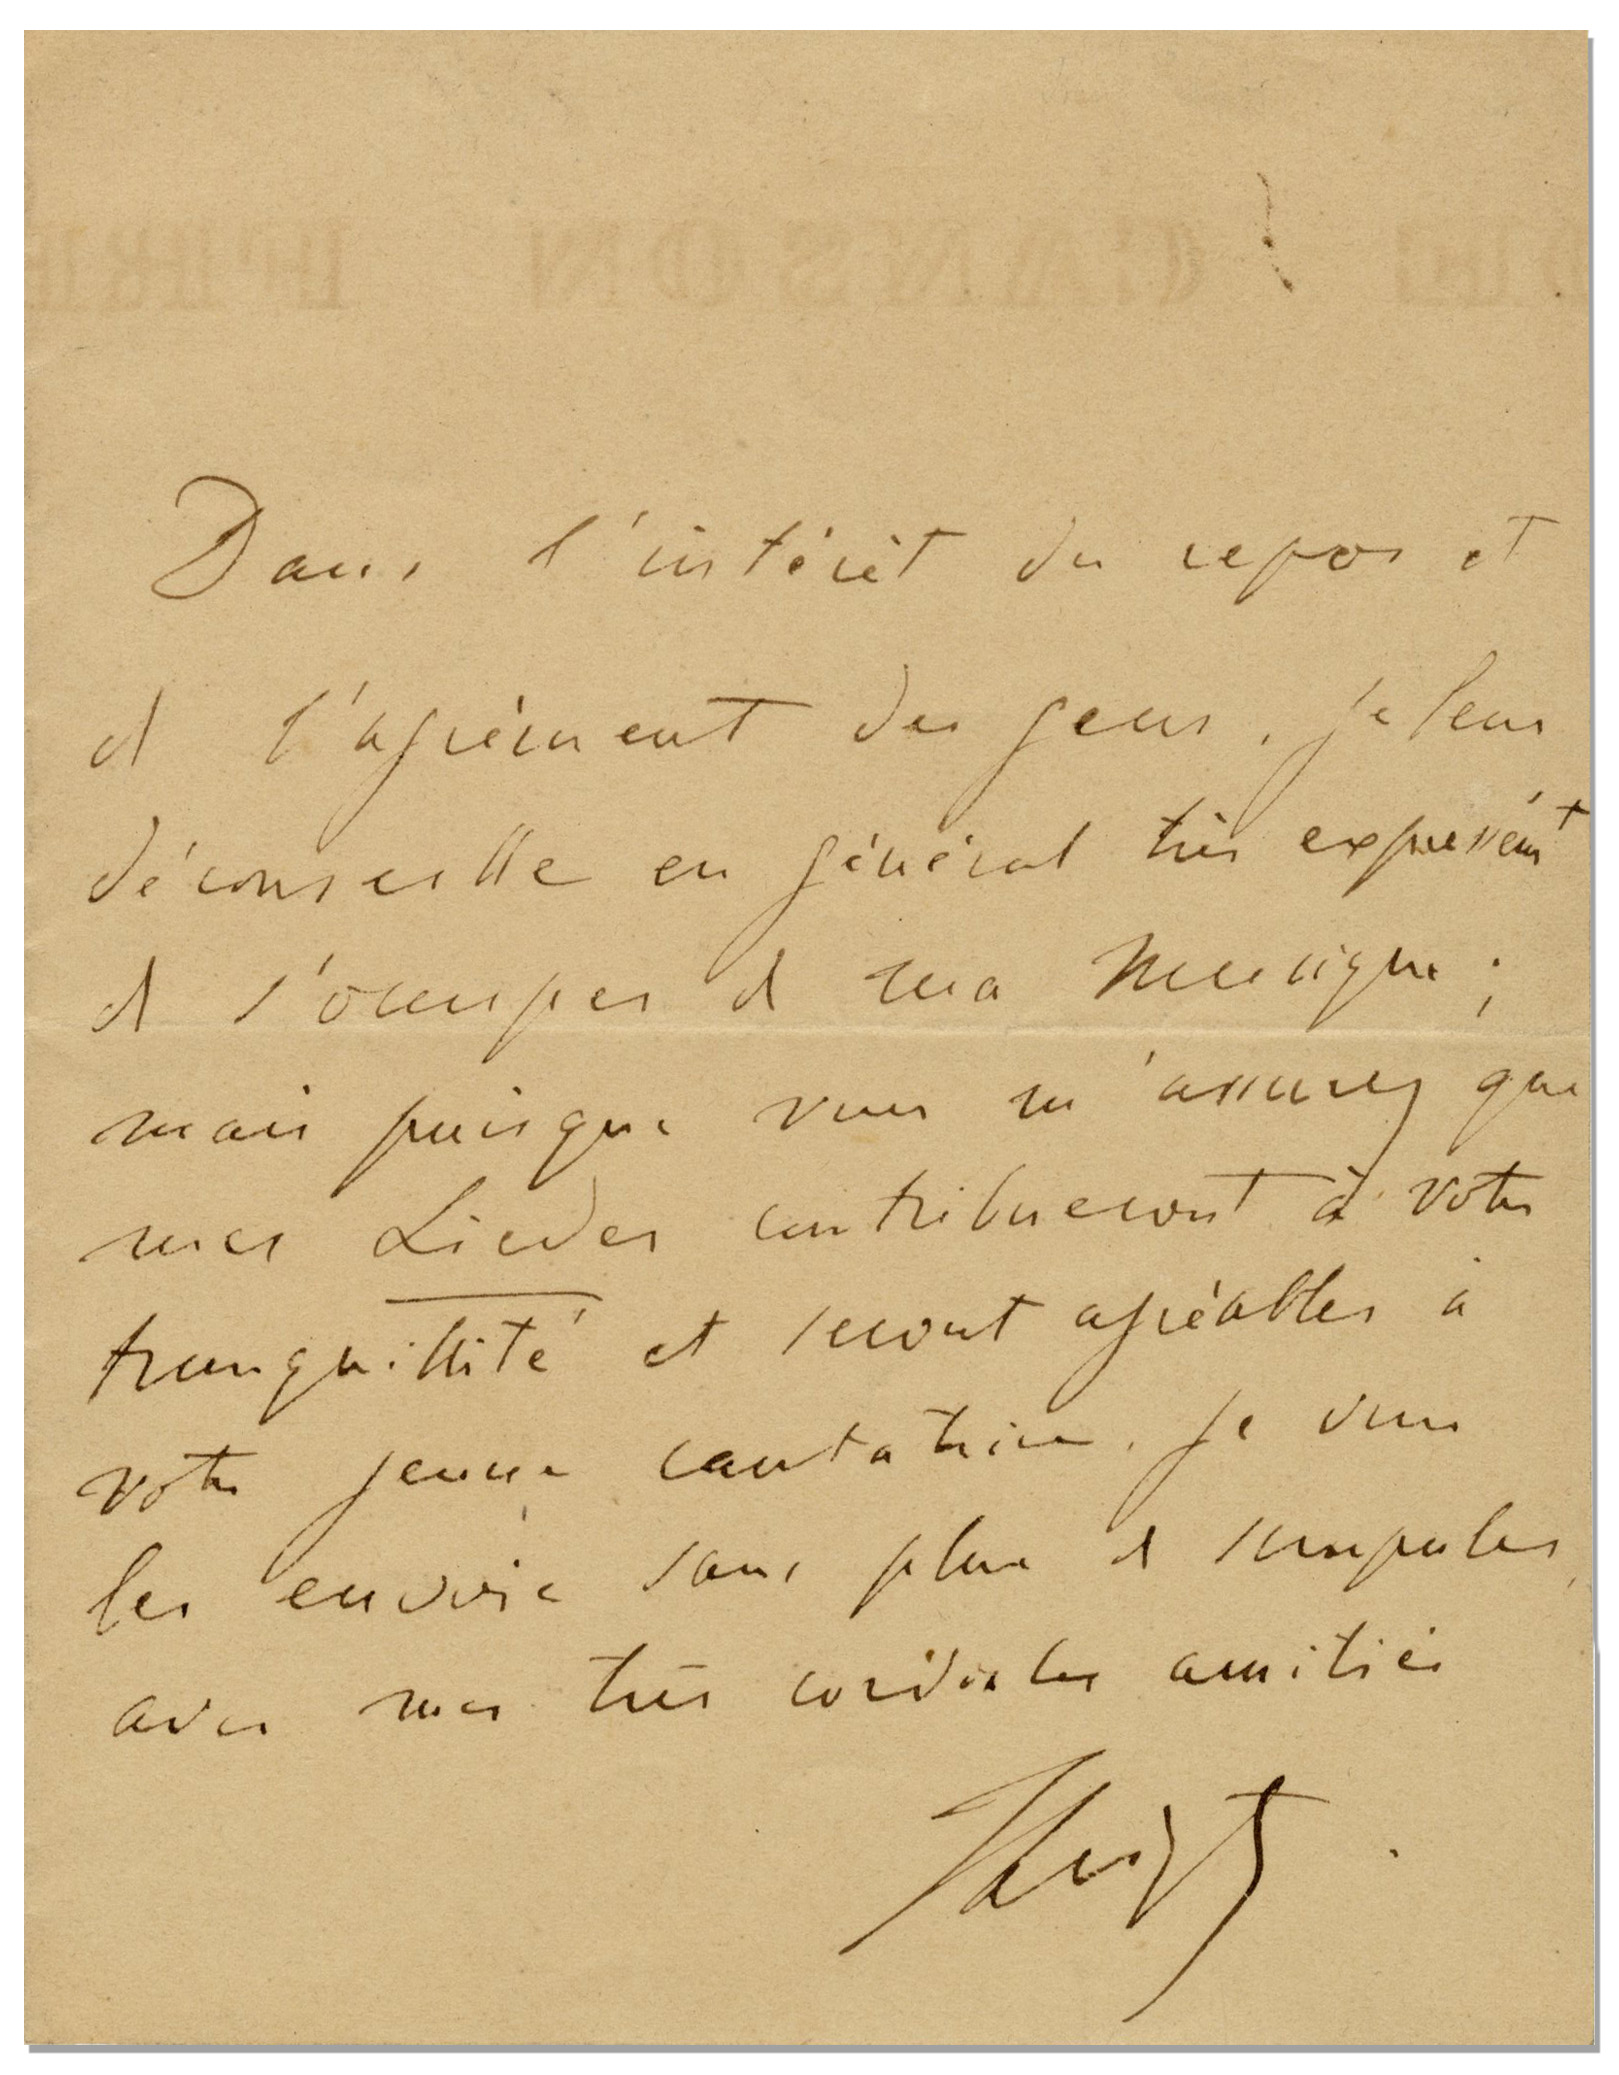 DE CANSON FRER
Dans l'intérêt du repos et
de l'agrément des gens, je leur
déconseille en général très expressém^t
de s'occuper de ma Musique ;
mais puisque vous m'assurez que
mes Lieder contribueront à votre
tranquillité et seront agréables à
votre jeune cantatrice, je vous
les envoie sans plus de scrupules,
avec mes très cordiales amitiés
FLiszt.